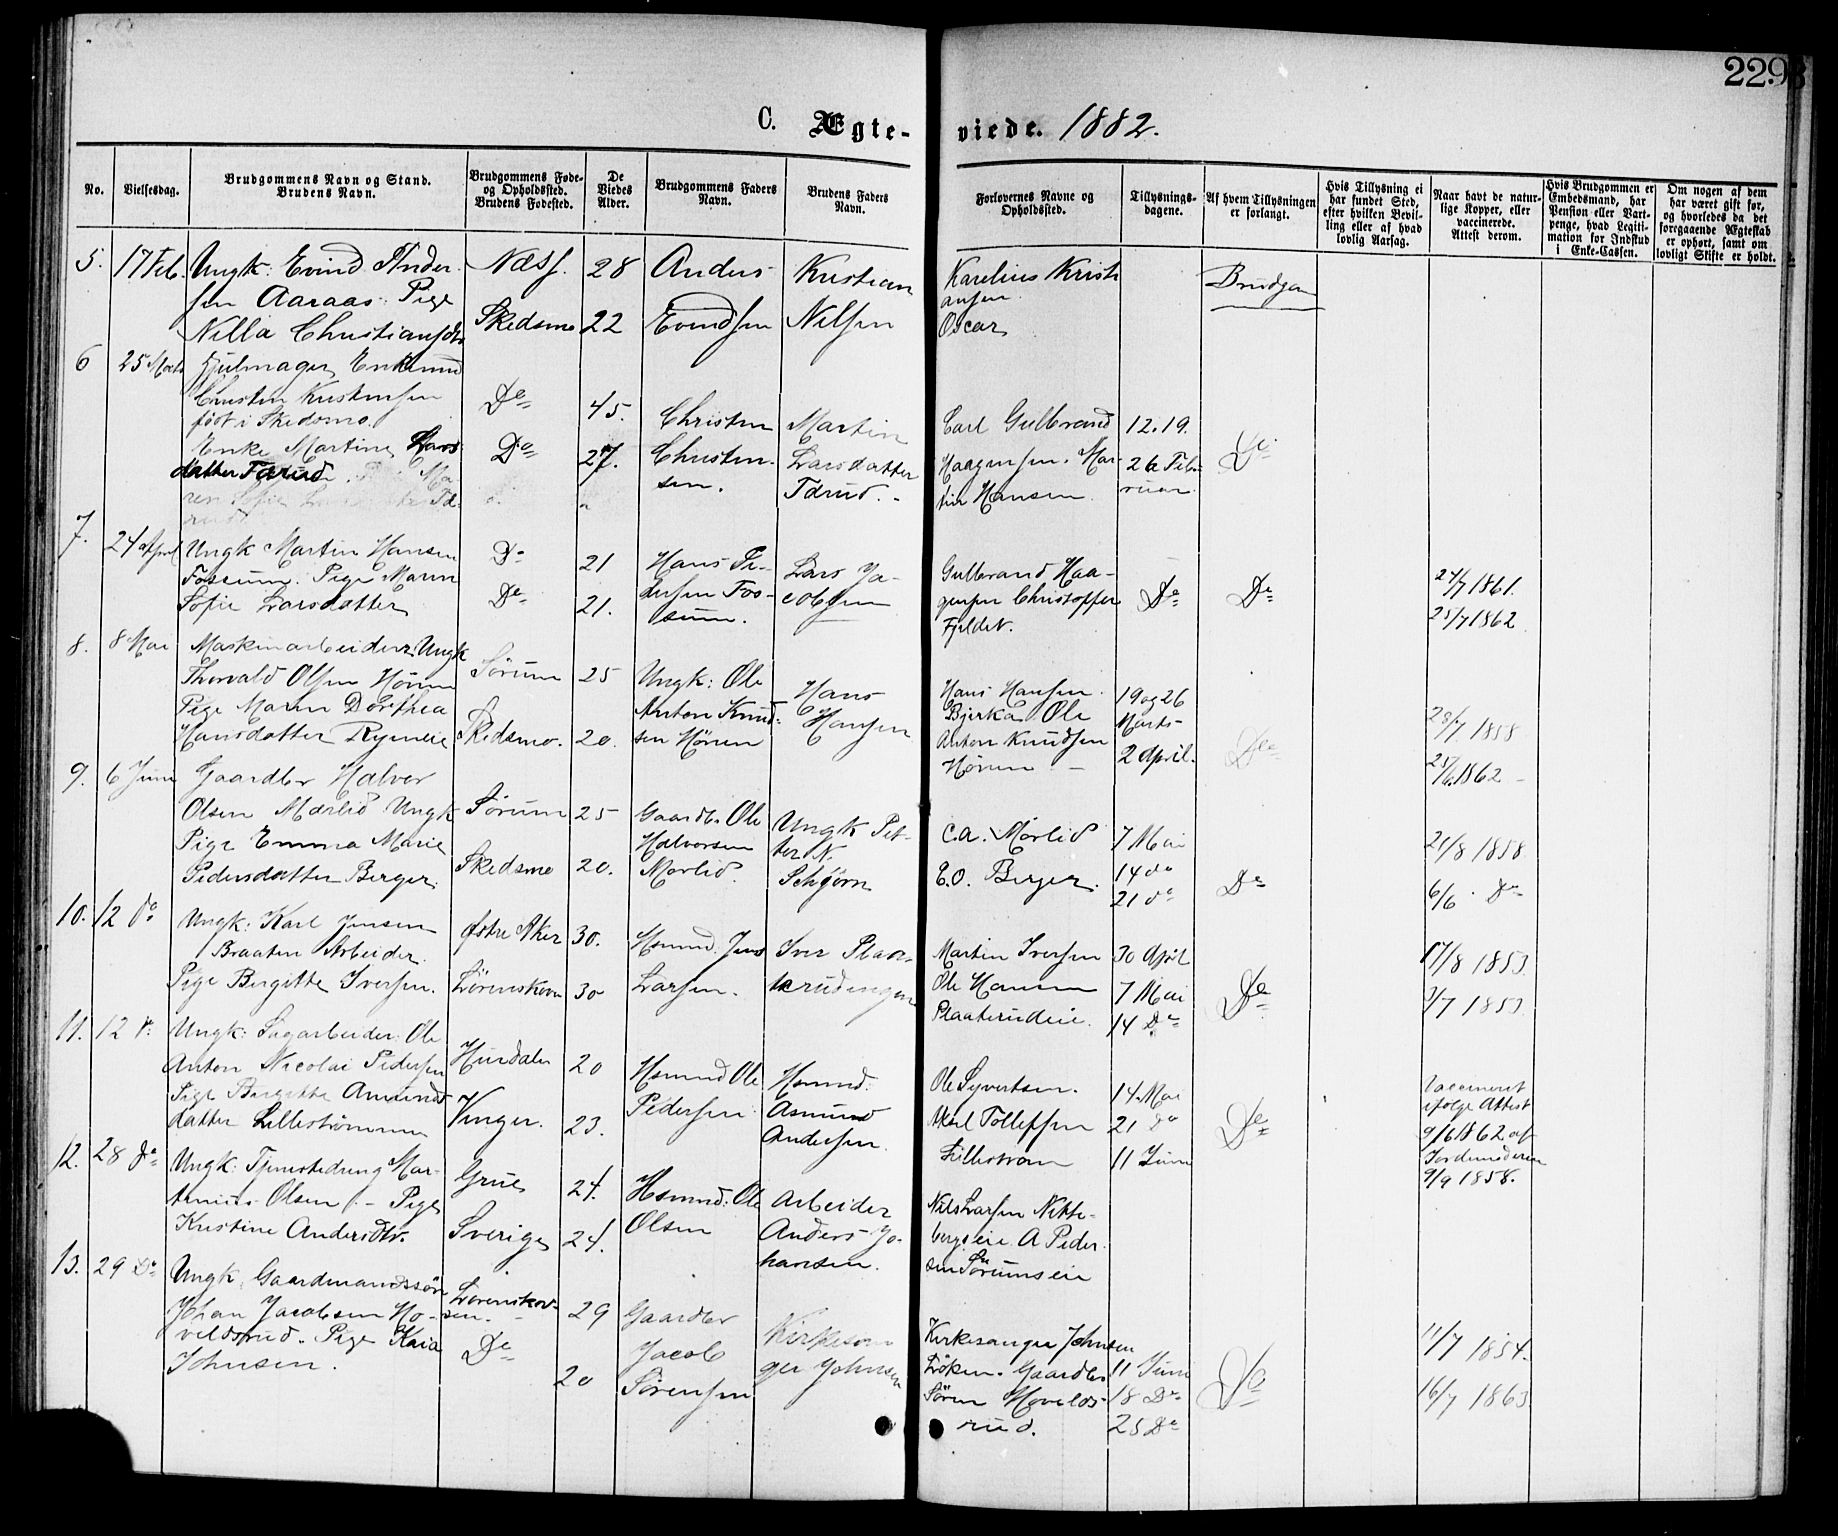 229
C. Ægte-
viede. 1882.
No.
Vielsesdag.
Brudgommens Navn og Stand.
Brudens Navn.
Brudgommens Føde-
og Opholdssted.
Brudens Fødested.
De
Viedes
Alder.
Brudgommens Faders
Navn.
Brudens Faders
Navn.
Forlovernes Navne og
Opholdssted.
Tillysnings-
dagene.
Af hvem Tillysningen
er forlangt.
Hvis Tillysning ei
har fundet Sted,
efter hvilken Bevil-
ling eller af hvad
lovlig Aarsag.
Naar havt de natur-
lige Kopper, eller
vaccinerede.
Attest derom.
Hvis Brudgommen er
Embedsmand, har
Pension eller Vart-
penge, hvad Legiti-
mation for Indskud
i Enke-Cassen.
Om nogen af dem
har været gift før,
og hvorledes da det
foregaaende Ægteskab
er ophørt, samt om
lovligt Skifte er holdt.
5. 17 Feb. Ungk: Evind Ander
sen Aaraas. Pige
Nilla Christiansdtr
Næss.
Skedsmo
28
22
Anders
Evindsen
Kristian
Nilsen
Karelius Kristi
ansen
Oscar
Brudgom
6 25 Marts Hjulmager Enkemand
Christen Kristensen
født i Skedsmo.
Enke Martine Lars
datter Tærud.
Do
Do
45.
27.
Christen
Christen-
sen.
Martin
Larsdatter
Tærud.
Carl Gulbrand
Haagensen. Mar-
tin Hansen
12. 19.
26 Feb-
ruar
Do
7. 24 April Ungk Martin Hansen
Fossum. Pige Maren
Sofie Larsdatter
Do
Do
21
21.
Hans Pe-
dersen Fos-
sum.
Lars Ja-
cobsen
Gulbrand Haa-
gensen Christopher
Fjeldet.
Do
Do
24/7 1861.
25/7 1862
8. 8 Mai Maskinarbeider Ungk
Thorvald Olsen Hönen
Pige Maren Dorthea
Hansdatter Ryneie
Sörum
Skedsmo.
25
20.
Ungk: Ole
Anton Knud-
sen Hönen
Hans
Hansen
Hans Hansen
Bjerka Ole
Anton Knudsen
Hönen
19 og 26
Marts
2 April.
Do
28/7 1858
25/6 1862
9. 6 Juni Gaardbr Halvor
Olsen Mærlid Ungk
Pige Emma Marie
Pedersdatter Berger.
Sörum
Skedsmo
25
20.
Gaardb. Ole
Halvorsen
Morlid.
Ungk Pet-
ter N.
Schjörn
C.A. Morlid
E.O. Berger.
7 Mai
14 do
21 do
Do
21/8 1858
6/6 Do
10. 12 do Ungk: Karl Jensen
Braaten Arbeider.
Pige Birgitte Iversen.
Østre Aker
Lörenskoven
30.
30
Hsmnd. Jens
Larsen.
Iver Plaa-
terudengen
Martin Iversen
Ole Hansen
Plaaterudeie.
30 April
7 Mai
14 Do
Do
17/8 1853.
3/7 1853
11. 12 do Ungk: Sagarbeider: Ole
Anton Nicolai Pedersen
Pige Birgitte Amunds
datter Lillestrømmen
Hurdalen
Vinger.
20
23.
Hsmnd Ole
Pedersen
Hsmnd:
Asmund
Andersen.
Ole Syvertsen.
Aksel Tollefsen
Lillestrøm
14. Mai
21 do
11 Juni
Do
Vaccineret
ifølge Attest
9/6 1862 af
Jordemoderen
9/9 1858.
12. 28 do Ungk: Tjenestedreng Mar-
tinius Olsen. - Pige
Kristine Andersdtr.
Grue
Sverige
24.
24.
Hsmnd: Ole
Olsen
Arbeider
Anders Jo-
hansen.
Nils Larsen Nitte-
bergseie. A Peder
sen Sörumseie
13. 29 Do Ungk. Gaardmandssøn
Johan Jacobsen Ho-
veldsrud. Pige Kaia
Johnsen.
Lørenskov-
en.
Do
29
20
Gaardbr
Jacob
Sörensen
Kirkesan
ger Johnsen
Kirkesanger Johnsen
Löken. Gaardbr
Sören Hovelds-
rud.
11 Juni
18 Do
25 Do
Do
11/7 1854.
16/7 1863